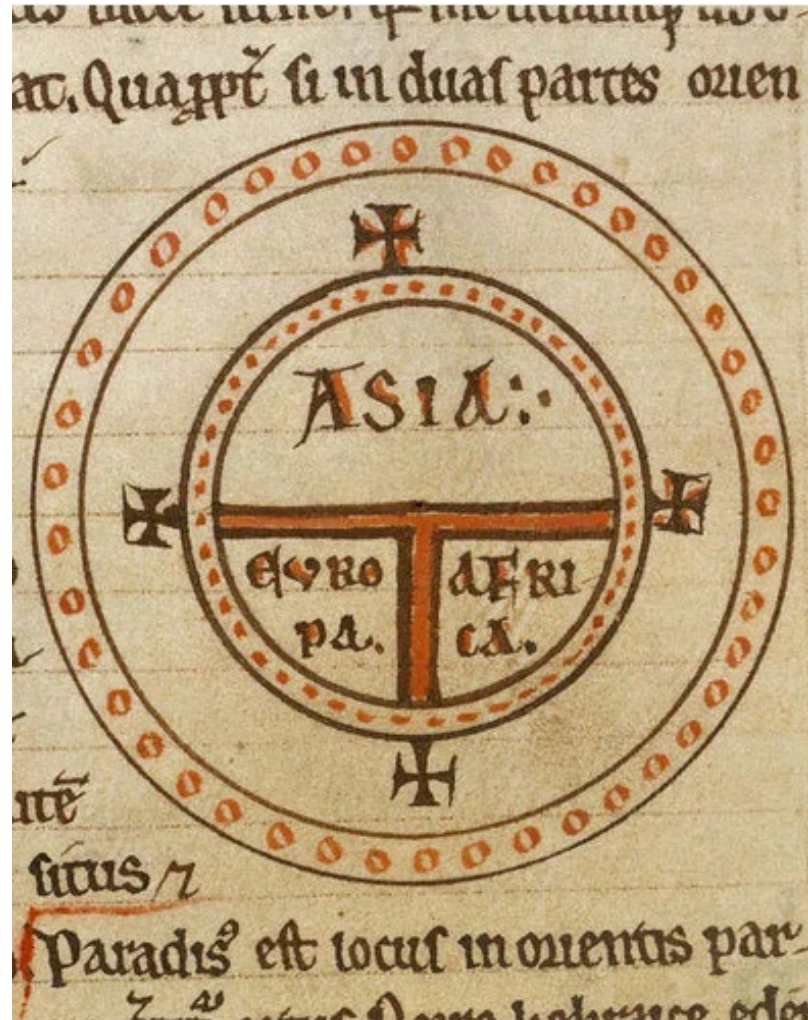 at. Quaꝓpt̄ si in duas partes orien
ASIA
EVRO
PA.
AFRI
CA.
utē
situs ⁊
Paradisꝰ est locus in orientis par-